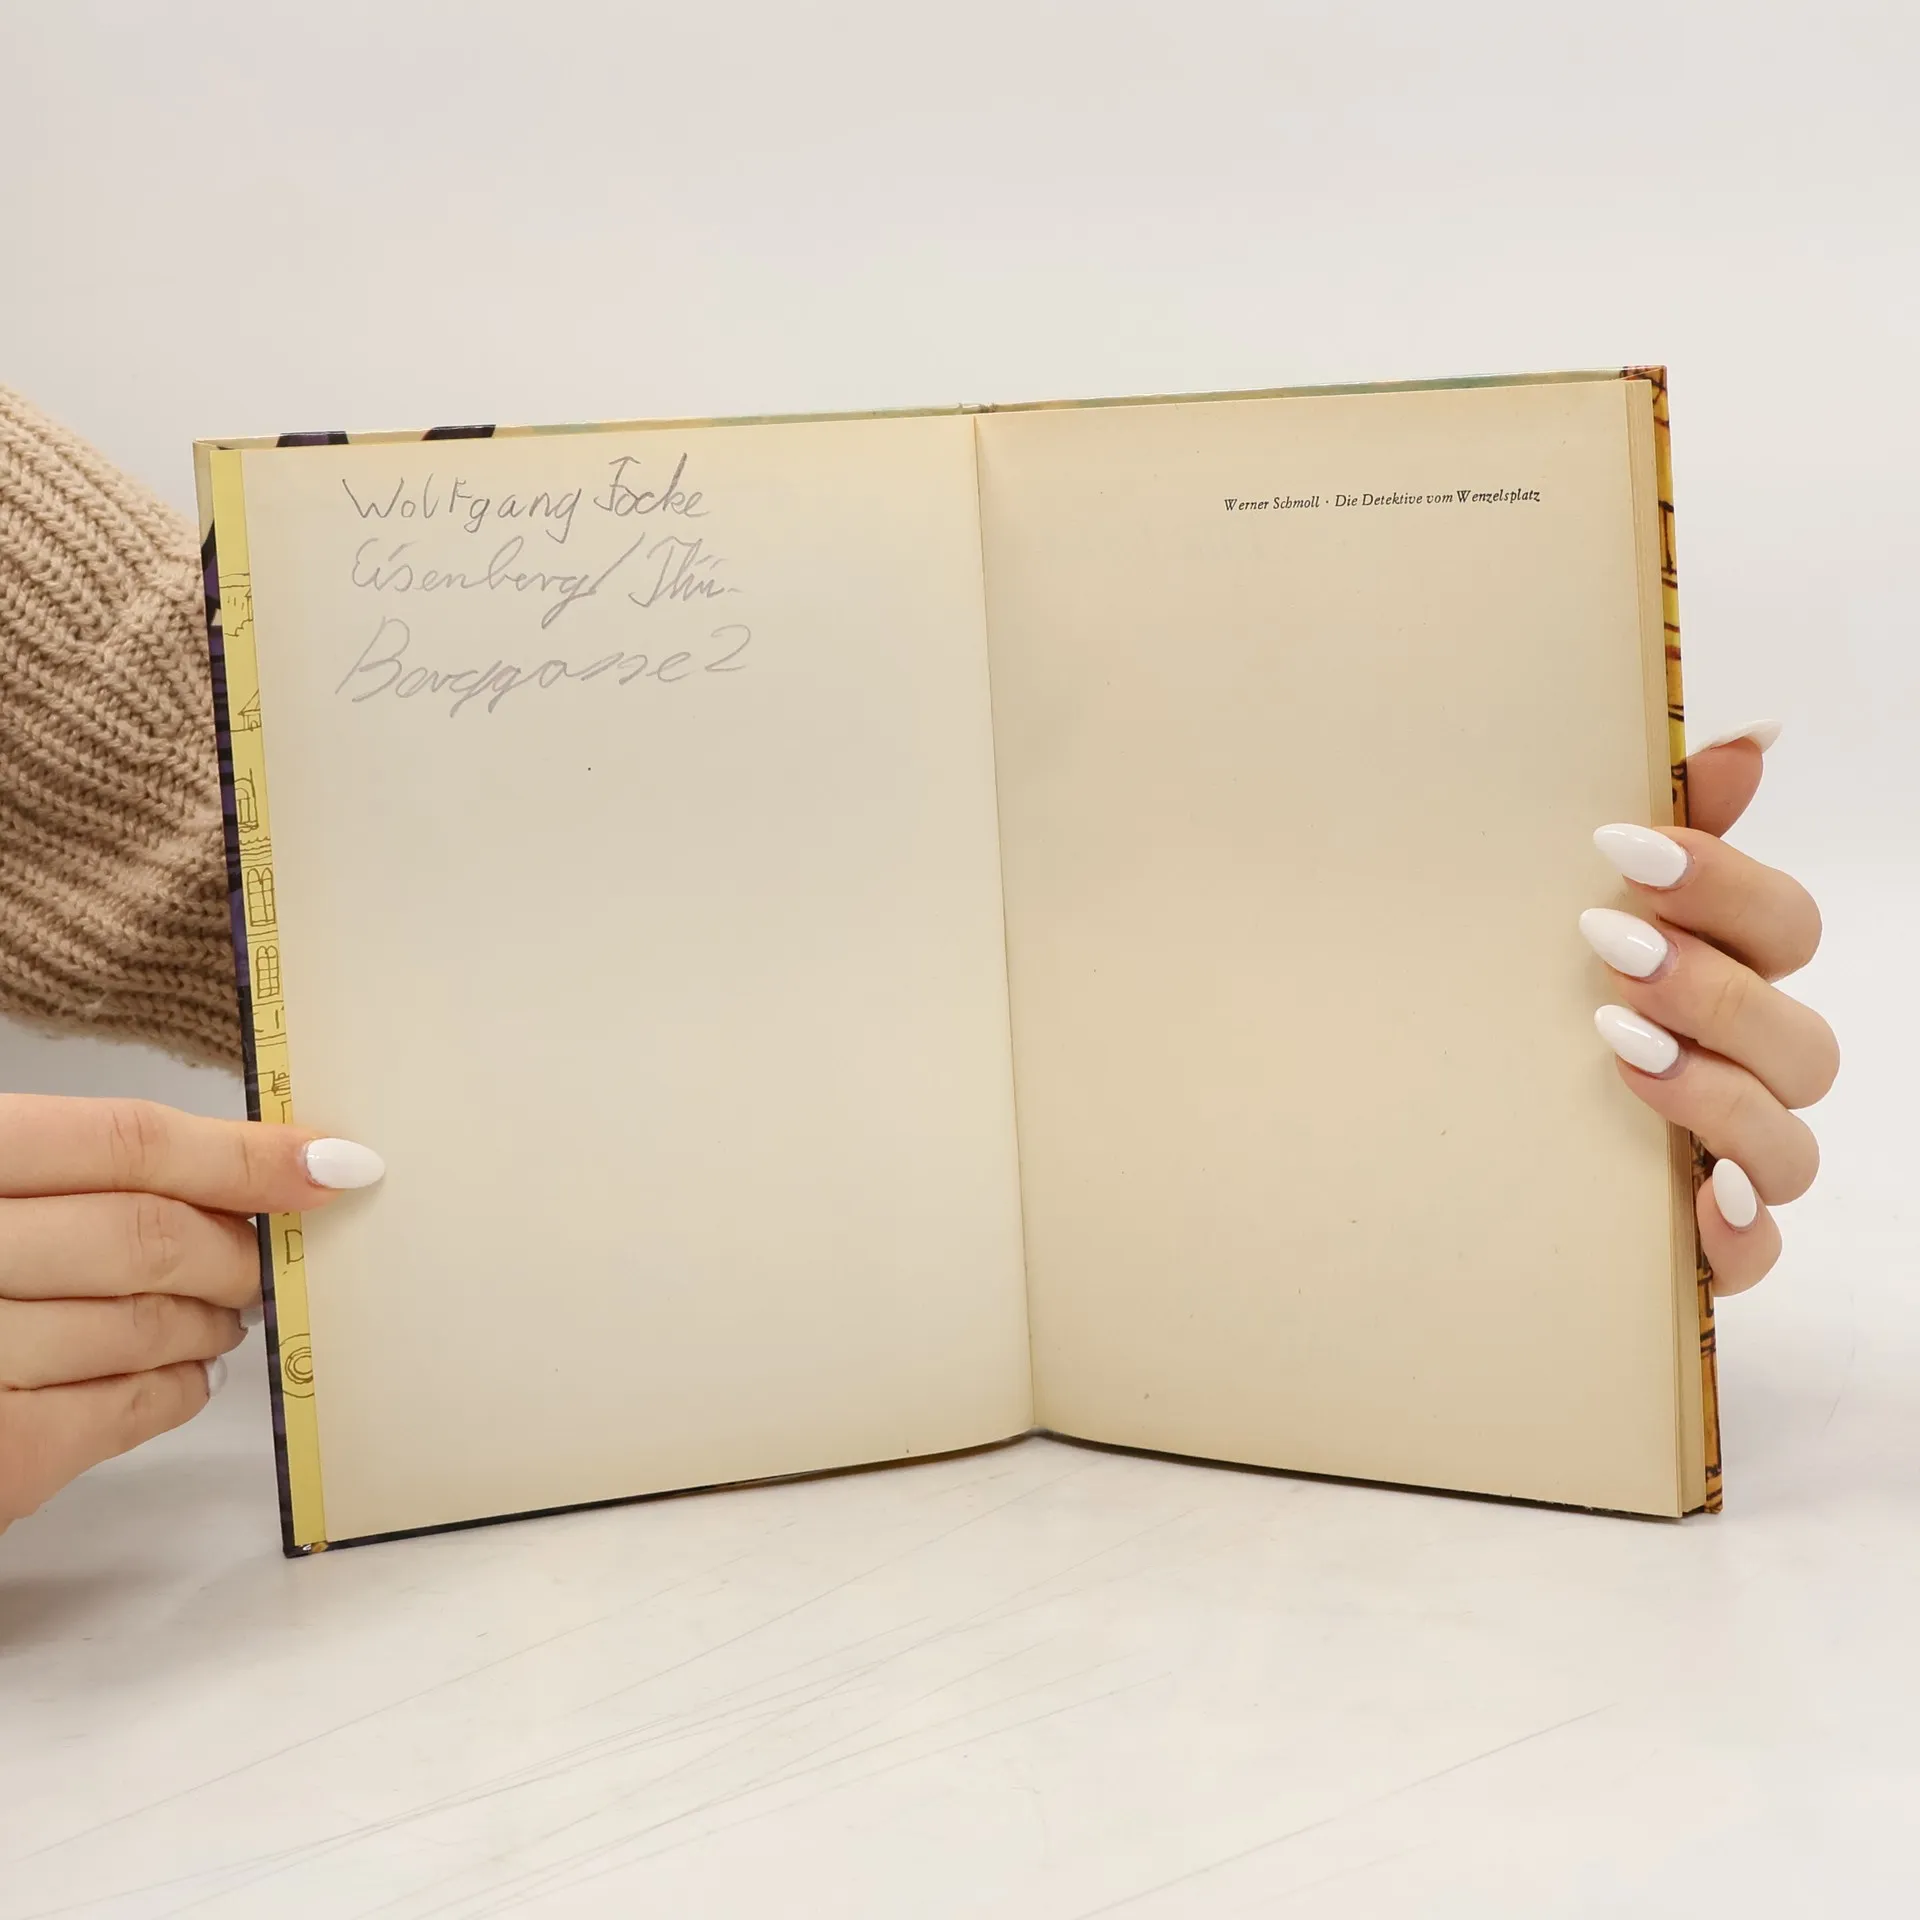 Wolfgang Focke
Eisenberg/Thü.
Berggasse 2
Werner Schmoll · Die Detektive vom Wenzelsplatz